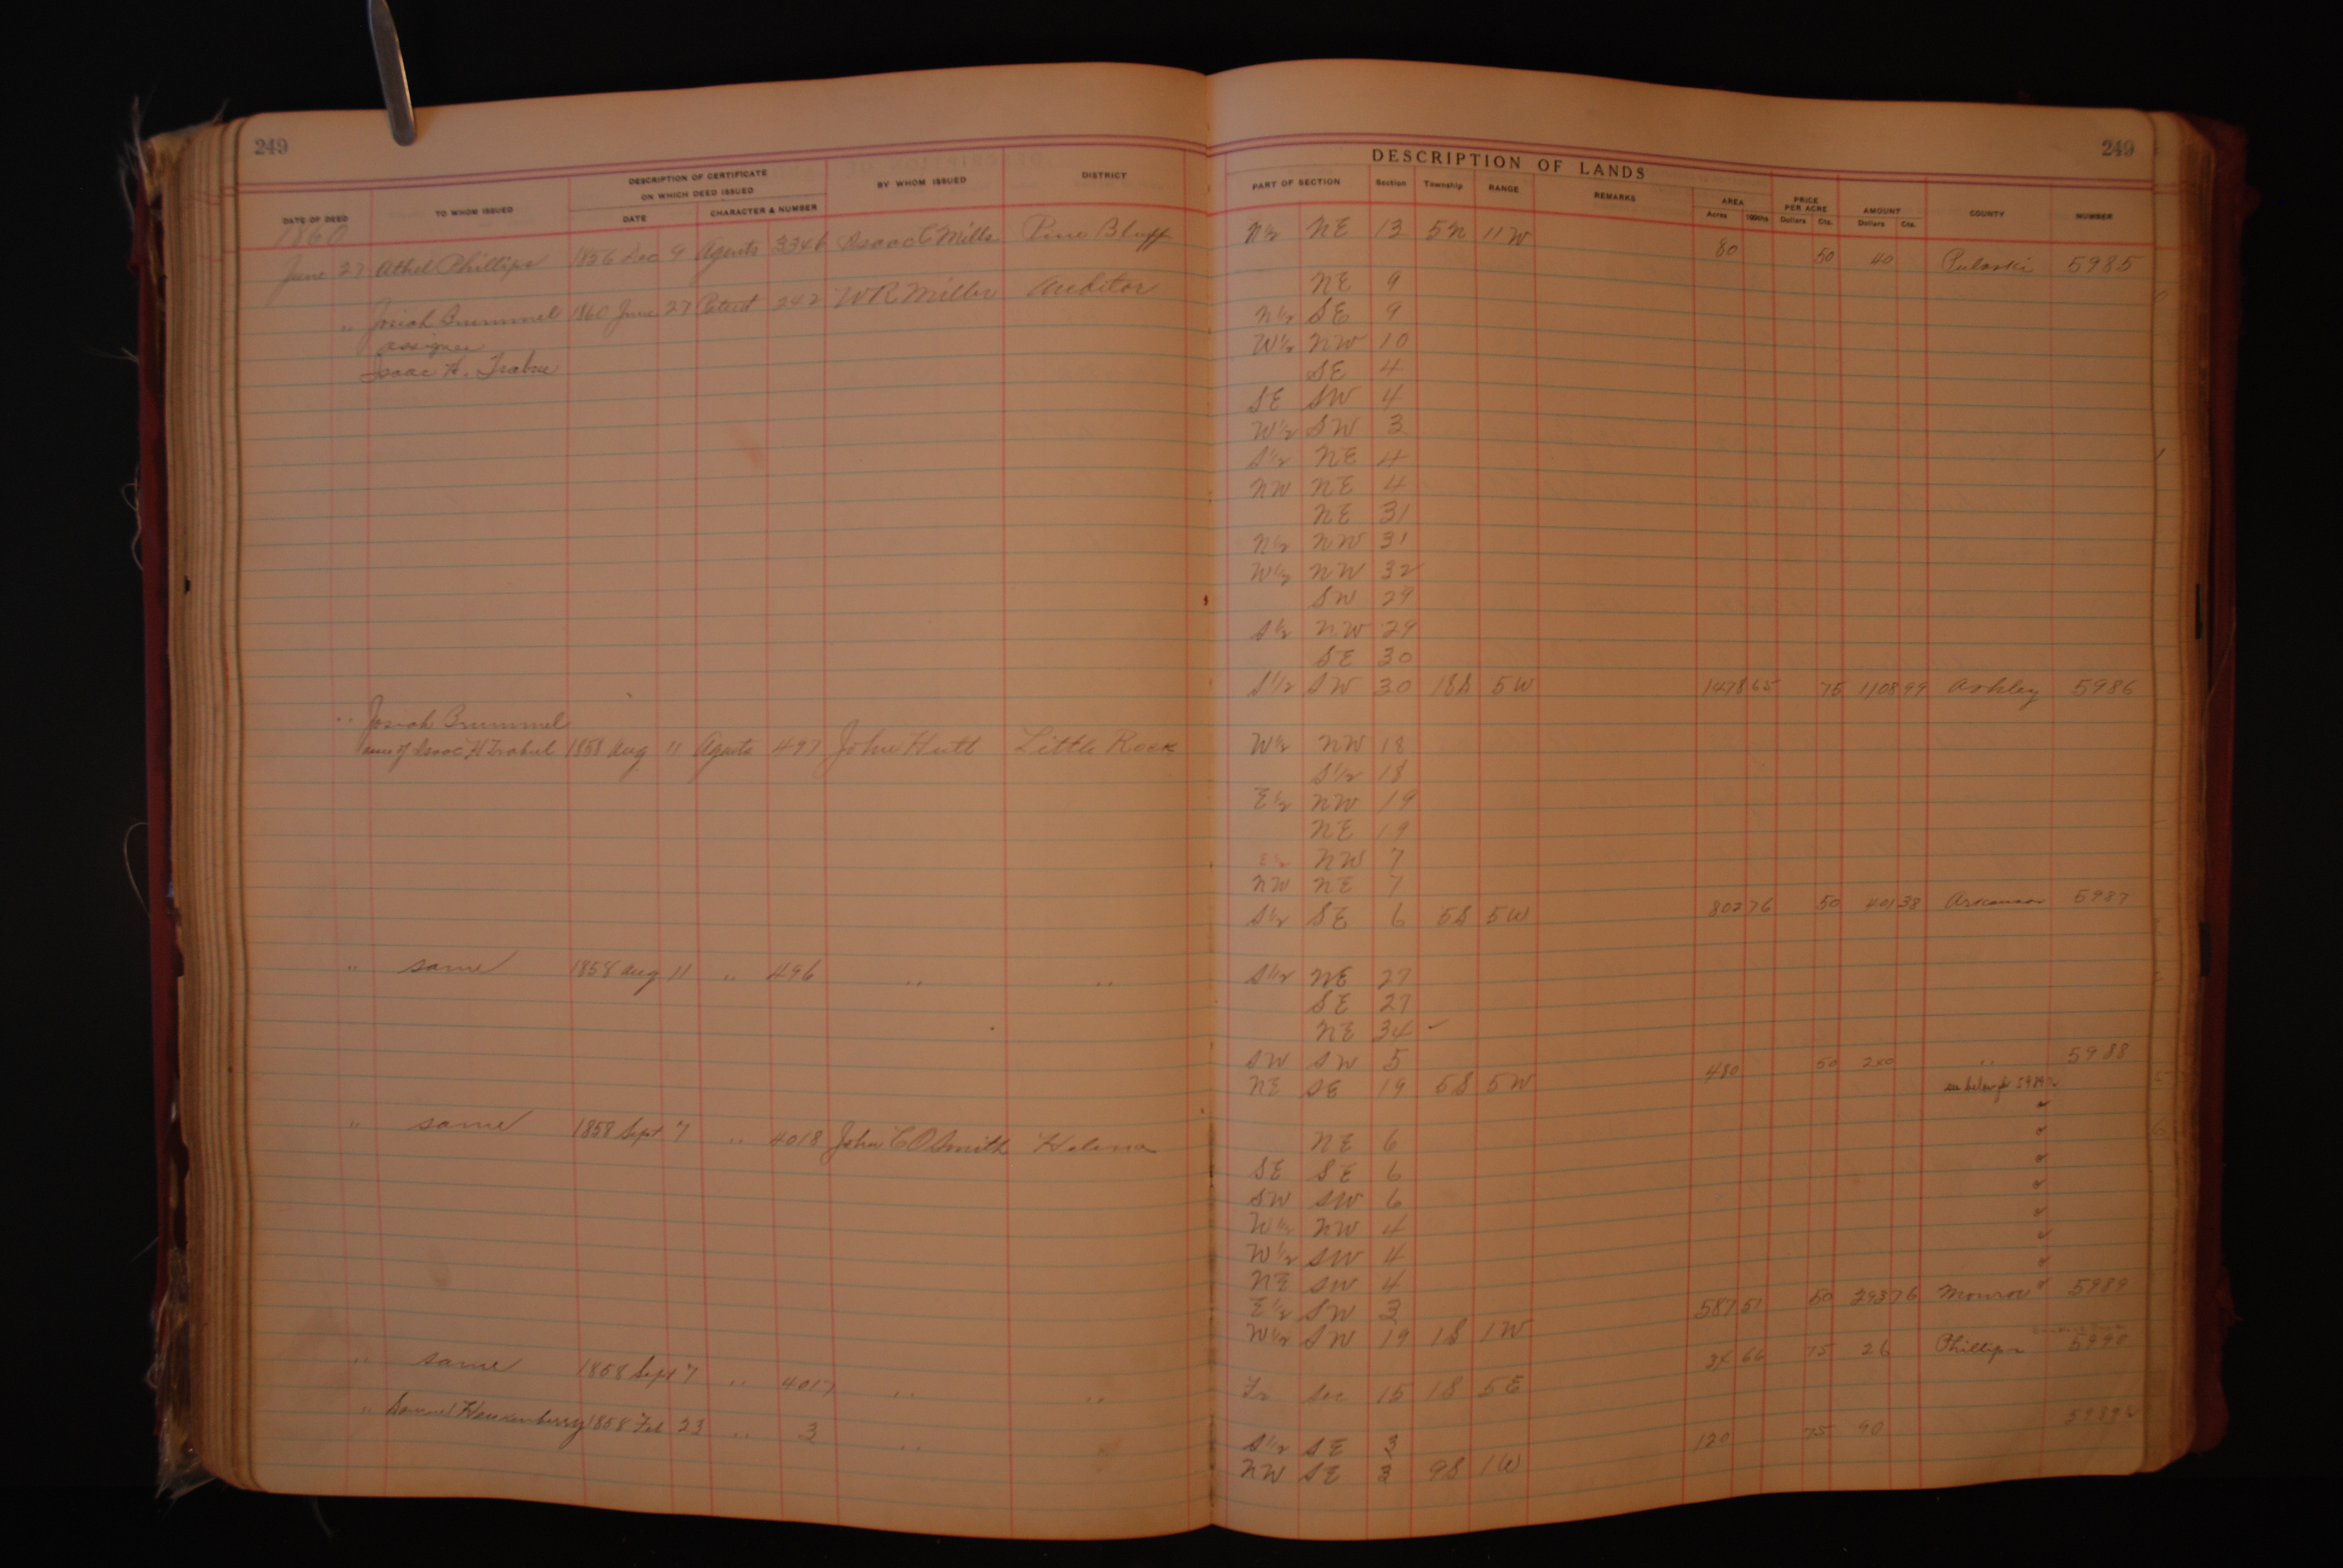 249
DESCRIPTION OF CERTIFICATE
ON WHICH DEED ISSUED
DATE OF DEED TO WHOM ISSUED DATE CHARACTER & NUMBER BY WHOM ISSUED DISTRICT
1860
June 27 Athel Phillips 1856 Dec 9 Agents 3346 Isaac C Mills Pine Bluff
" Josiah Brummel 1860 June 27 Patent 242 W R Miller Auditor
assignee
Isaac H. Trabue
" Josiah Brummel
of Isaac H Trabue 1858 Aug 11 Agents 497 John Hutt Little Rock
" same 1858 Aug 11 " 496 " "
" same 1858 Sept 7 " 4018 John C O Smith Helena
" same 1858 Sept 7 " 4017 " "
" Samuel 1858 Feb 23 " 3 "
249
DESCRIPTION OF LANDS
PART OF SECTION Section Township RANGE REMARKS AREA Acres 100ths PRICE PER ACRE Dollars Cts. AMOUNT Dollars Cts. COUNTY NUMBER
N½ NE 13 5N 11W 80 50 40 Pulaski 5985
NE 9
N½ SE 9
W½ NW 10
SE 4
SE SW 4
W½ SW 3
S½ NE 4
NW NE 4
NE 31
N½ NW 31
W½ NW 32
SW 29
S½ NW 29
SE 30
S½ SW 30 18S 5W 1478 65 75 1108 99 Ashley 5986
W½ NW 18
S½ 18
E½ NW 19
NE 19
E½ NW 7
NW NE 7
S½ SE 6 5S 5W 802 76 50 401 38 Arkansas 5987
S½ NE 27
SE 27
NE 34 ✓
SW SW 5
NE SE 19 5S 5W 480 50 240 " 5988
NE 6
SE SE 6
SW SW 6
W½ NW 4
W½ SW 4
NE SW 4
E½ SW 3
W½ SW 19 1S 1W 587 51 50 293 76 Monroe 5989
Fr Sec 15 1S 5E 34 66 75 26 Phillips 5990
S½ SE 3
NW SE 3 9S 1W 120 75 90